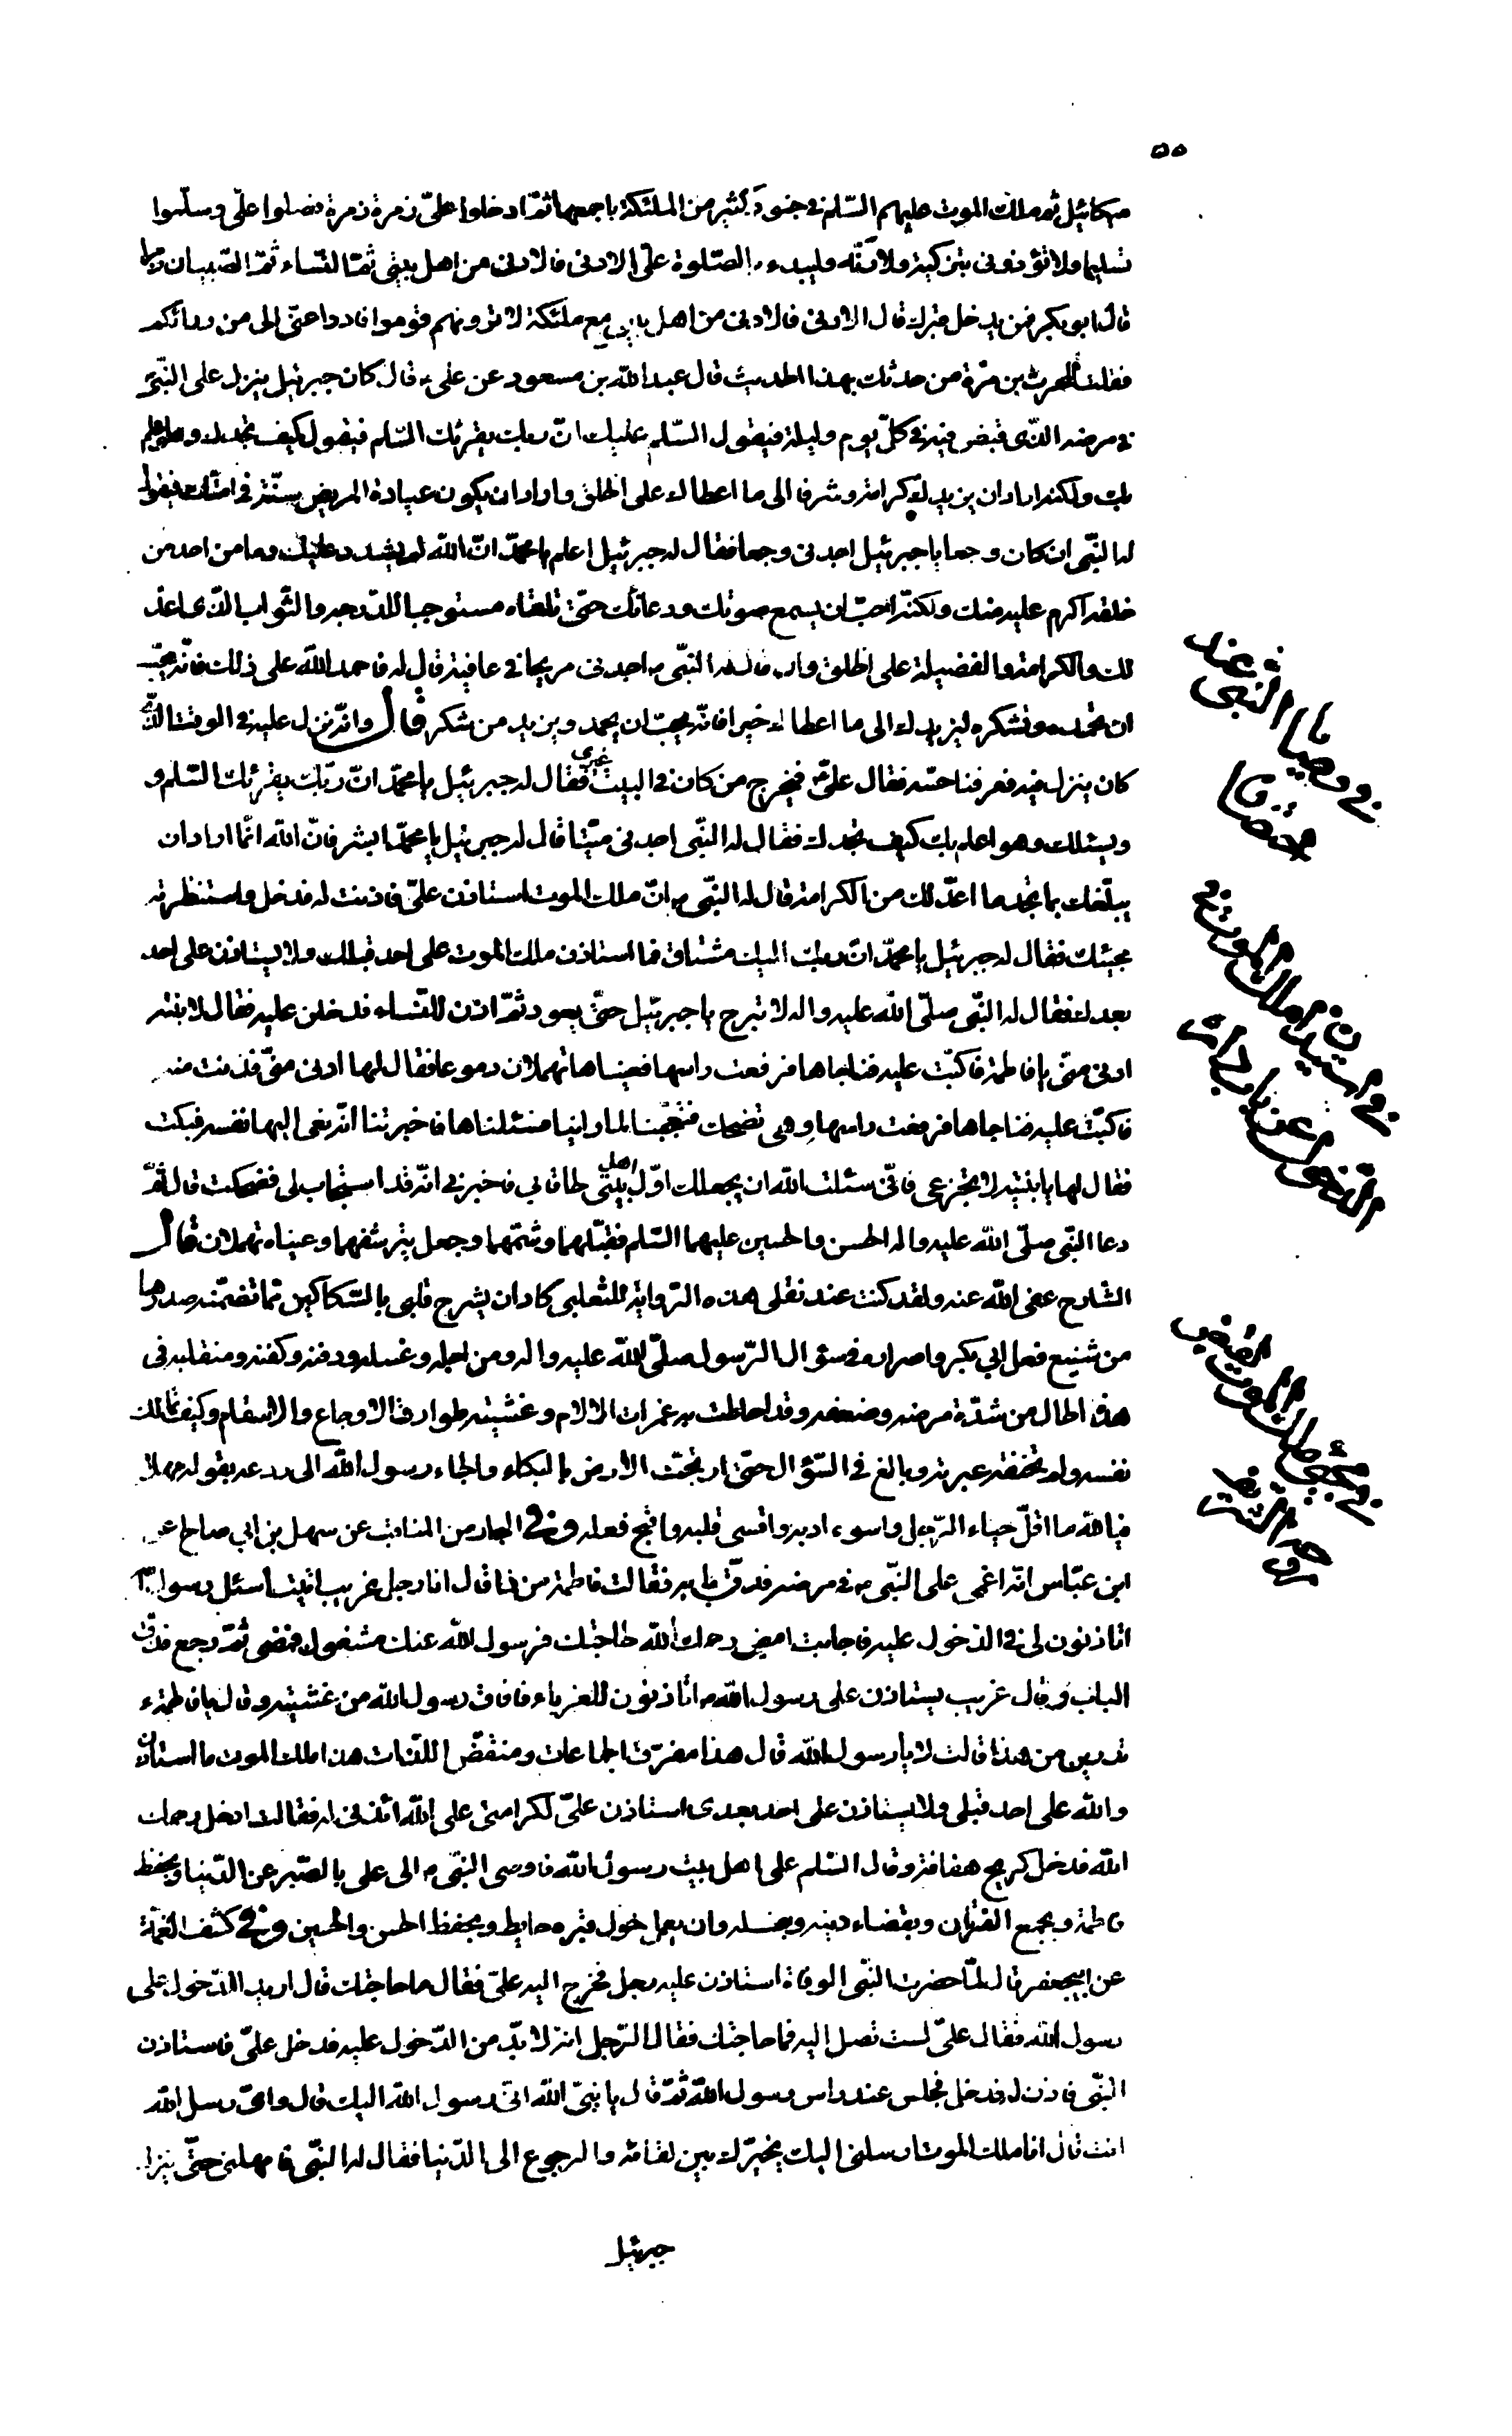 ٥٥
ميكائيل ثم ملك الموت عليهم السّلم في جنود كثير من الملئكة باجمعها ثمّ ادخلوا علىّ زمرة زمرة فصلوا علىّ وسلّموا
تسليما ولا تؤذونى بتزكية ولا رنّه وليبدء بالصّلوة علىّ الادنى فالادنى من اهل بيتى ثمّ النّساء ثمّ الصّبيان زمرا
قال ابو بكر فمن يدخل قبرك قال الادنى فالادنى من اهل بيتى مع ملئكة لا ترونهم قوموا فادوا عنّى الى من ورائكم
فقلت للحرث بن مرّة من حدثك بهذا الحديث قال عبد اللّه بن مسعود عن علىّ ع قال كان جبرئيل ينزل على النّبىّ
في مرضه الّذى قبض فيه في كلّ يوم وليلة فيقول السّلم عليك انّ ربك يقرئك السّلم فيقول كيف تجدك وهو اعلم
بك ولكنه اراد ان يزيدك كرامة وشرفا الى ما اعطاك على الخلق واراد ان يكون عيادة المريض سنّة في امتك فيقول
له النّبى ان كان وجعا يا جبرئيل اجدنى وجعا فقال له جبرئيل اعلم يا محمّد انّ اللّه لم يشدد عليك وما من احد من
خلقه اكرم عليه منك ولكنّه احبّ ان يسمع صوتك ودعائك حتّى تلقاه مستوجبا للدرجه والثّواب الّذى اعدّ
لك والكرامة والفضيلة على الخلق وان قال له النّبى ص اجدنى مريحا في عافية قال له فاحمد اللّه على ذلك فانّه يحبّ
ان تحمده وتشكره ليزيدك الى ما اعطاك خيرا فانّه يحبّ ان يحمد ويزيد من شكر قال وانّه نزل عليه في الوقت الّذى
كان ينزل فيه فعرفنا حسّه فقال علىّ فيخرج من كان في البيت غيرى فقال له جبرئيل يا محمّد انّ ربّك يقرئك السّلم و
ويسئلك وهو اعلم بك كيف تجدك فقال له النّبى اجدنى ميّتا قال له جبرئيل يا محمّد ابشر فانّ اللّه انّما اراد ان
يبلّغك بما تجد ما اعدّ لك من الكرامة قال له النّبى ص انّ ملك الموت استاذن علىّ فاذنت له فدخل واستنظرته
مجيئك فقال له جبرئيل يا محمّد انّ ربك اليك مشتاق فما استاذن ملك الموت على احد قبلك ولا يستاذن على احد
بعدك فقال له النّبى صلّى اللّه عليه واله لا تبرح يا جبرئيل حتّى يعود ثمّ اذن للنّساء فدخلن عليه فقال لابنته
ادنى منّى يا فاطمة فاكبّت عليه فناجاها فرفعت راسها فعيناها تهملان دموعا فقال لها ادنى منّى فدنت منه
فاكبّت عليه فناجاها فرفعت راسها وهى تضحك فتعجّبنا لما راينا فسئلناها فاخبرتنا انّه نعى اليها نفسه فبكت
فقال لها يا بنيّه لا تجزعى فانّى سئلت اللّه ان يجعلك اوّل اهل بيتى لحاقا بي فاخبرنى انّه قد استجاب لى فضحكت قال ثمّ
دعا النّبى صلّى اللّه عليه واله الحسن والحسين عليهما السّلم فقبّلهما وشمّهما وجعل يترشفهما وعيناه تهملان قال
الشّارح عفى اللّه عنه ولقد كنت عند نقلى هذه الرّواية للثعلبى كاد ان يشرح قلبى بالسّكاكين ممّا تضمّنه صدرها
من شنيع فعل ابي بكر واصراره في سؤال الرّسول صلّى اللّه عليه واله ومن اجله وغسله ودفنه وكفنه ومنقلبه في
هذا الحال من شدّة مرضه وضعفه وقد احاطت به غمرات الالام وغشيته طوارق الاوجاع والاسقام وكيف تمالك
نفسه ولم تخنقه عبرته وبالغ في السّؤال حتّى ارتجّت الارض بالبكاء والجاء رسول اللّه الى ردعه بقوله مهلا
فيا للّه ما اقلّ حياء الرّجل واسوء ادبه واقسى قلبه واقبح فعله وفى البحار من المناقب عن سهل بن ابي صالح عن
ابن عبّاس انّه اغمى على النّبى ص في مرضه فدقّ بابه فقالت فاطمة من ذا قال انا رجل غريب اتيت اسئل رسول اللّه
اتاذنون لى في الدّخول عليه فاجابت امض رحمك اللّه لحاجتك فرسول اللّه عنك مشغول فمضى ثمّ رجع فدقّ
الباب وقال غريب يستاذن على رسول اللّه ص اتاذنون للغرباء فافاق رسول اللّه من غشيته وقال يا فاطمة ء
تدرين من هذا قالت لا يا رسول اللّه قال هذا مفرّق الجماعات ومنغّص اللذّات هذا ملك الموت ما استاذن
واللّه على احد قبلى ولا يستاذن على احد بعدى استاذن علىّ لكرامتى على اللّه ائذنى له فقالت ادخل رحمك
اللّه فدخل كريح هفافة وقال السّلم على اهل بيت رسول اللّه فاوصى النّبى ص الى على بالصّبر عن الدّنيا وبحفظ
فاطمة وبجمع القران وبقضاء دينه وبغسله وان يعمل حول قبره حايط وبحفظ الحسن والحسين وفى كشف الغمّة
عن ابيجعفر قال لمّا حضرت النّبى الوفاة استاذن عليه رجل فخرج اليه علىّ فقال ما حاجتك قال اريد الدّخول على
رسول اللّه فقال علىّ لست تصل اليه فما حاجتك فقال الرّجل انه لا بدّ من الدّخول عليه فدخل علىّ فاستاذن
النّبى فاذن له فدخل فجلس عند راس رسول اللّه ثمّ قال يا نبىّ اللّه انّى رسول اللّه اليك قال واىّ رسل اللّه
انت قال انا ملك الموت ارسلنى اليك يخيّرك بين لقائه والرجوع الى الدّنيا فقال له النّبى فامهلنى حتّى ينزل
جبرئيل
في وصايا النبي
عند
في استيذان ملك الموت في
الدخول
في مجيئ ملك الموت